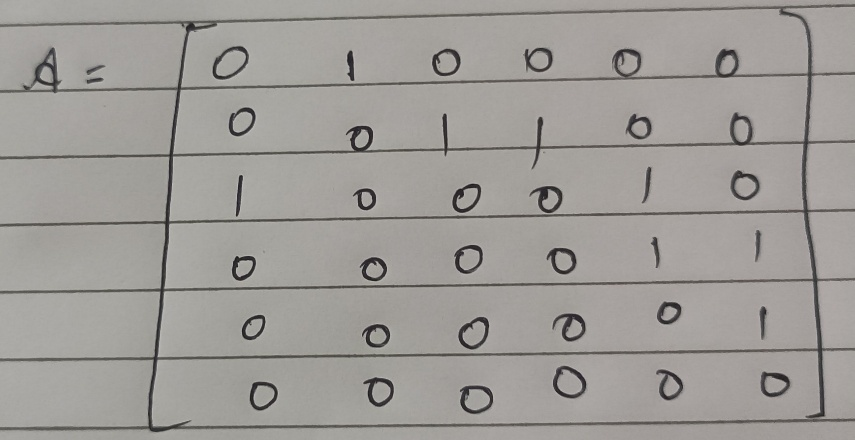 A = 0 1 0 0 0 0
0 0 1 1 0 0
1 0 0 0 1 0
0 0 0 0 1 1
0 0 0 0 0 1
0 0 0 0 0 0